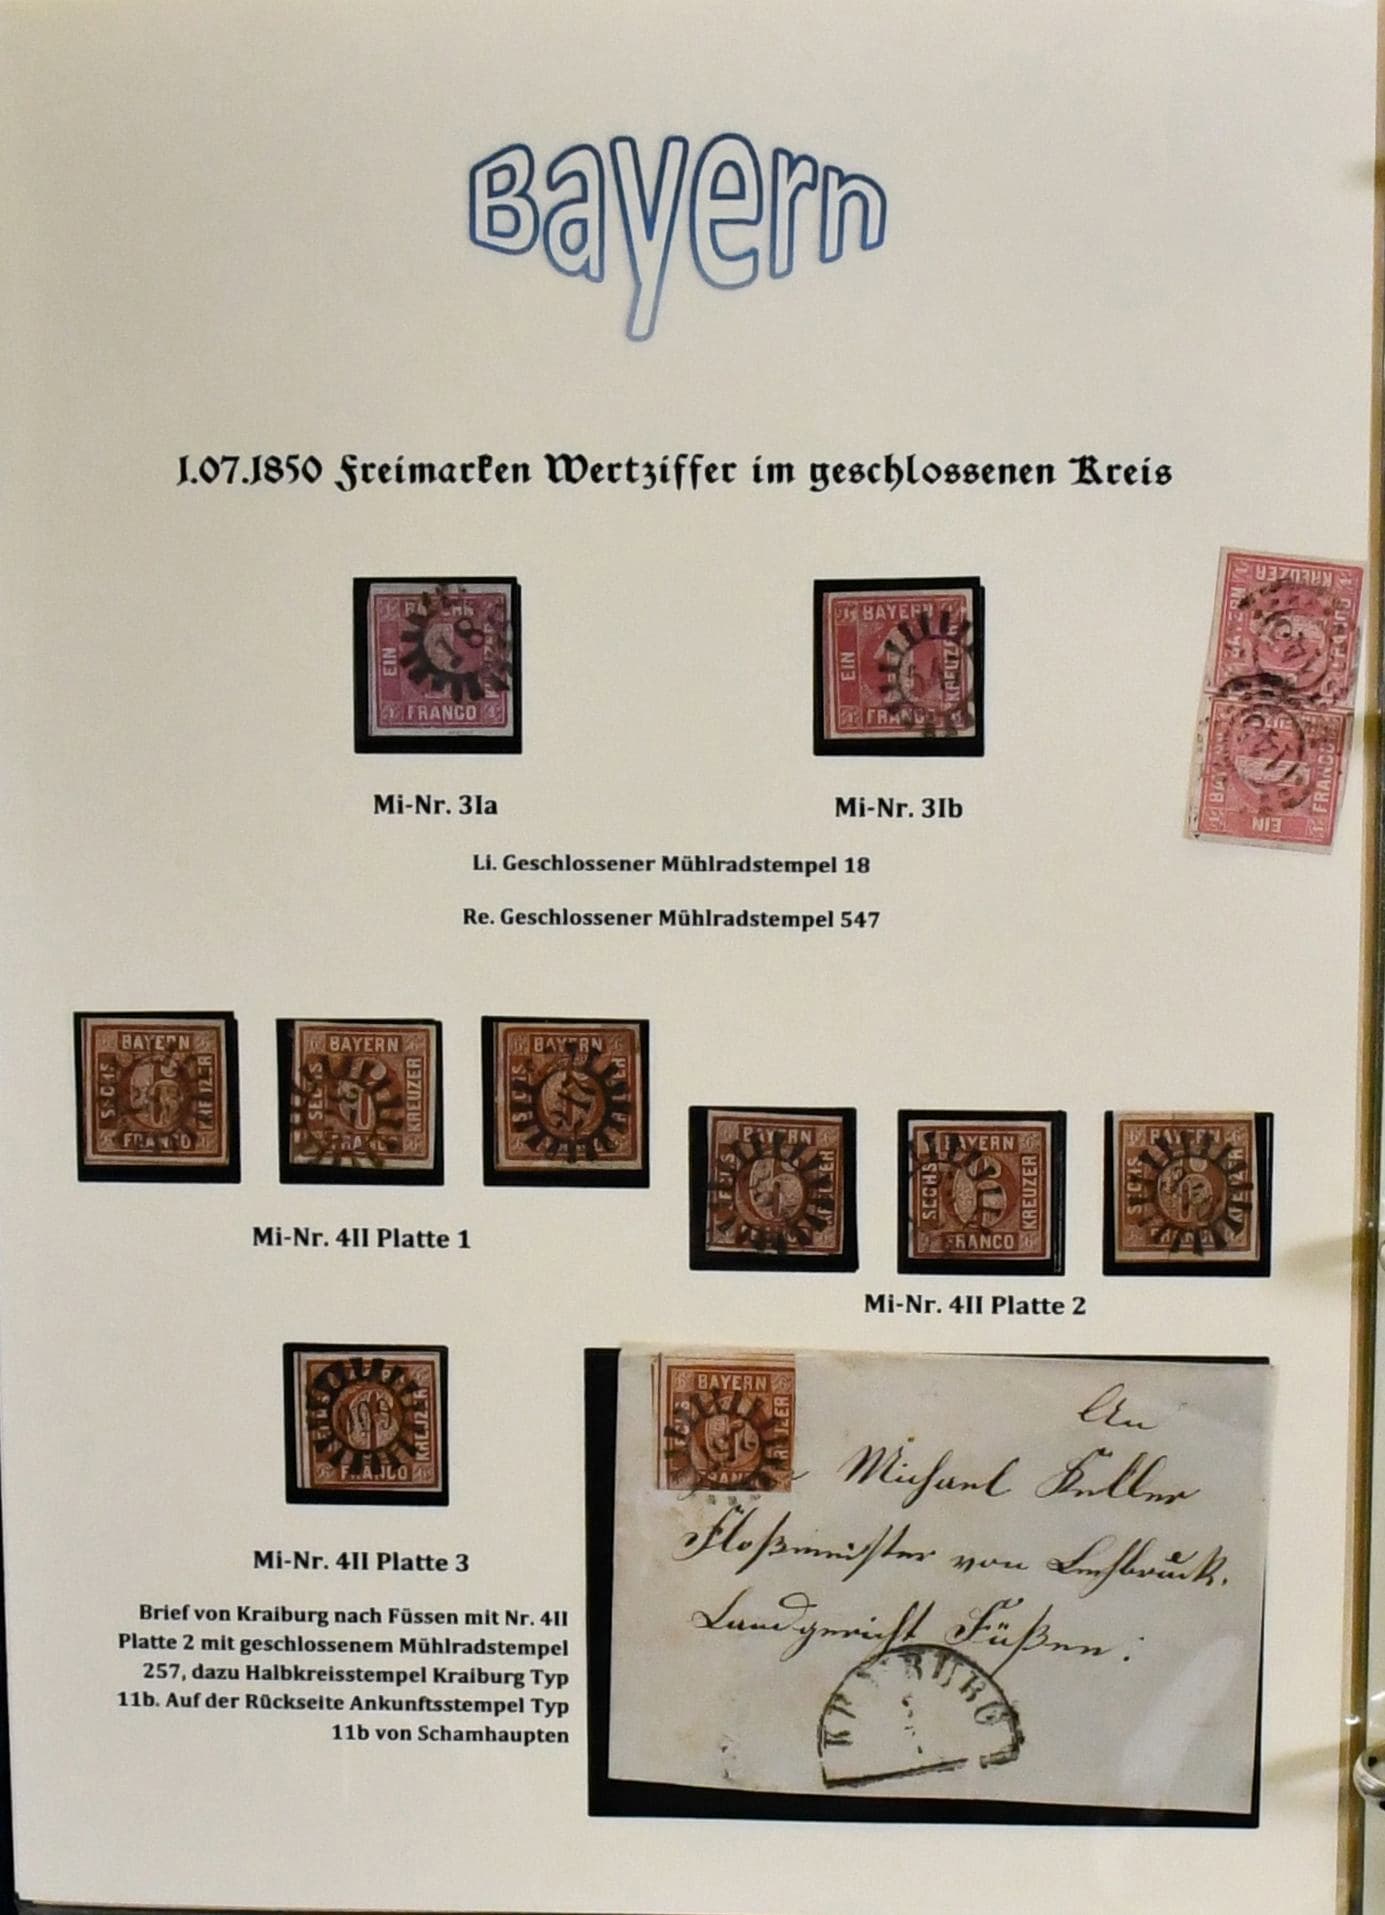 Bayern
1.07.1850 Freimarken Wertziffer im geschlossenen Kreis
BAYERN
EIN
FRANCO
18
BAYERN
EIN
KREUZER
FRANCO
KREUZER
FRANCO
BAYERN
EIN
Mi-Nr. 3Ia
Mi-Nr. 3Ib
Li. Geschlossener Mühlradstempel 18
Re. Geschlossener Mühlradstempel 547
BAYERN
SECHS
KREUZER
FRANCO
BAYERN
SECHS
KREUZER
FRANCO
BAYERN
SECHS
Mi-Nr. 4II Platte 1
BAYERN
SECHS
KREUZER
BAYERN
SECHS
KREUZER
FRANCO
BAYERN
SECHS
KREUZER
FRANCO
Mi-Nr. 4II Platte 2
KREUZER
FRANCO
Mi-Nr. 4II Platte 3
Brief von Kraiburg nach Füssen mit Nr. 4II
Platte 2 mit geschlossenem Mühlradstempel
257, dazu Halbkreisstempel Kraiburg Typ
11b. Auf der Rückseite Ankunftsstempel Typ
11b von Schamhaupten
BAYERN
KREUZER
An
Michael Keller
Floßmeister von Lechbruck.
Landgericht Füßen:
KRAIBURG